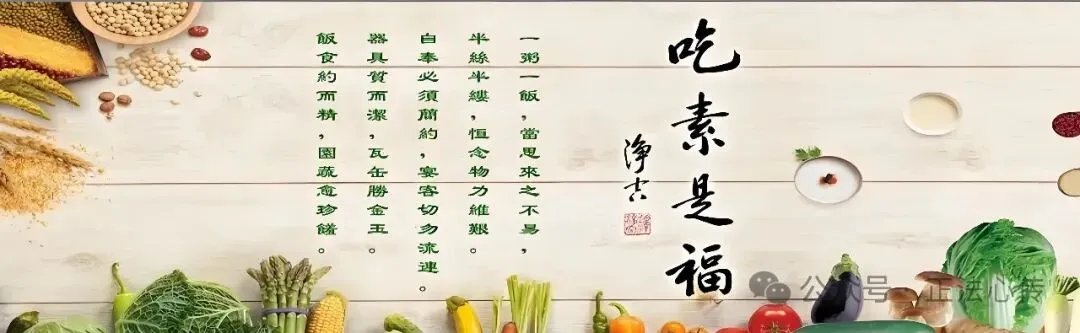 吃素是福
淨古
一粥一飯,當思來之不易,
半絲半縷,恒念物力維艱。
自奉必須簡約,宴客切勿流連。
器具質而潔,瓦缶勝金玉。
飯食約而精,園蔬愈珍饈。
公众号·正法心转